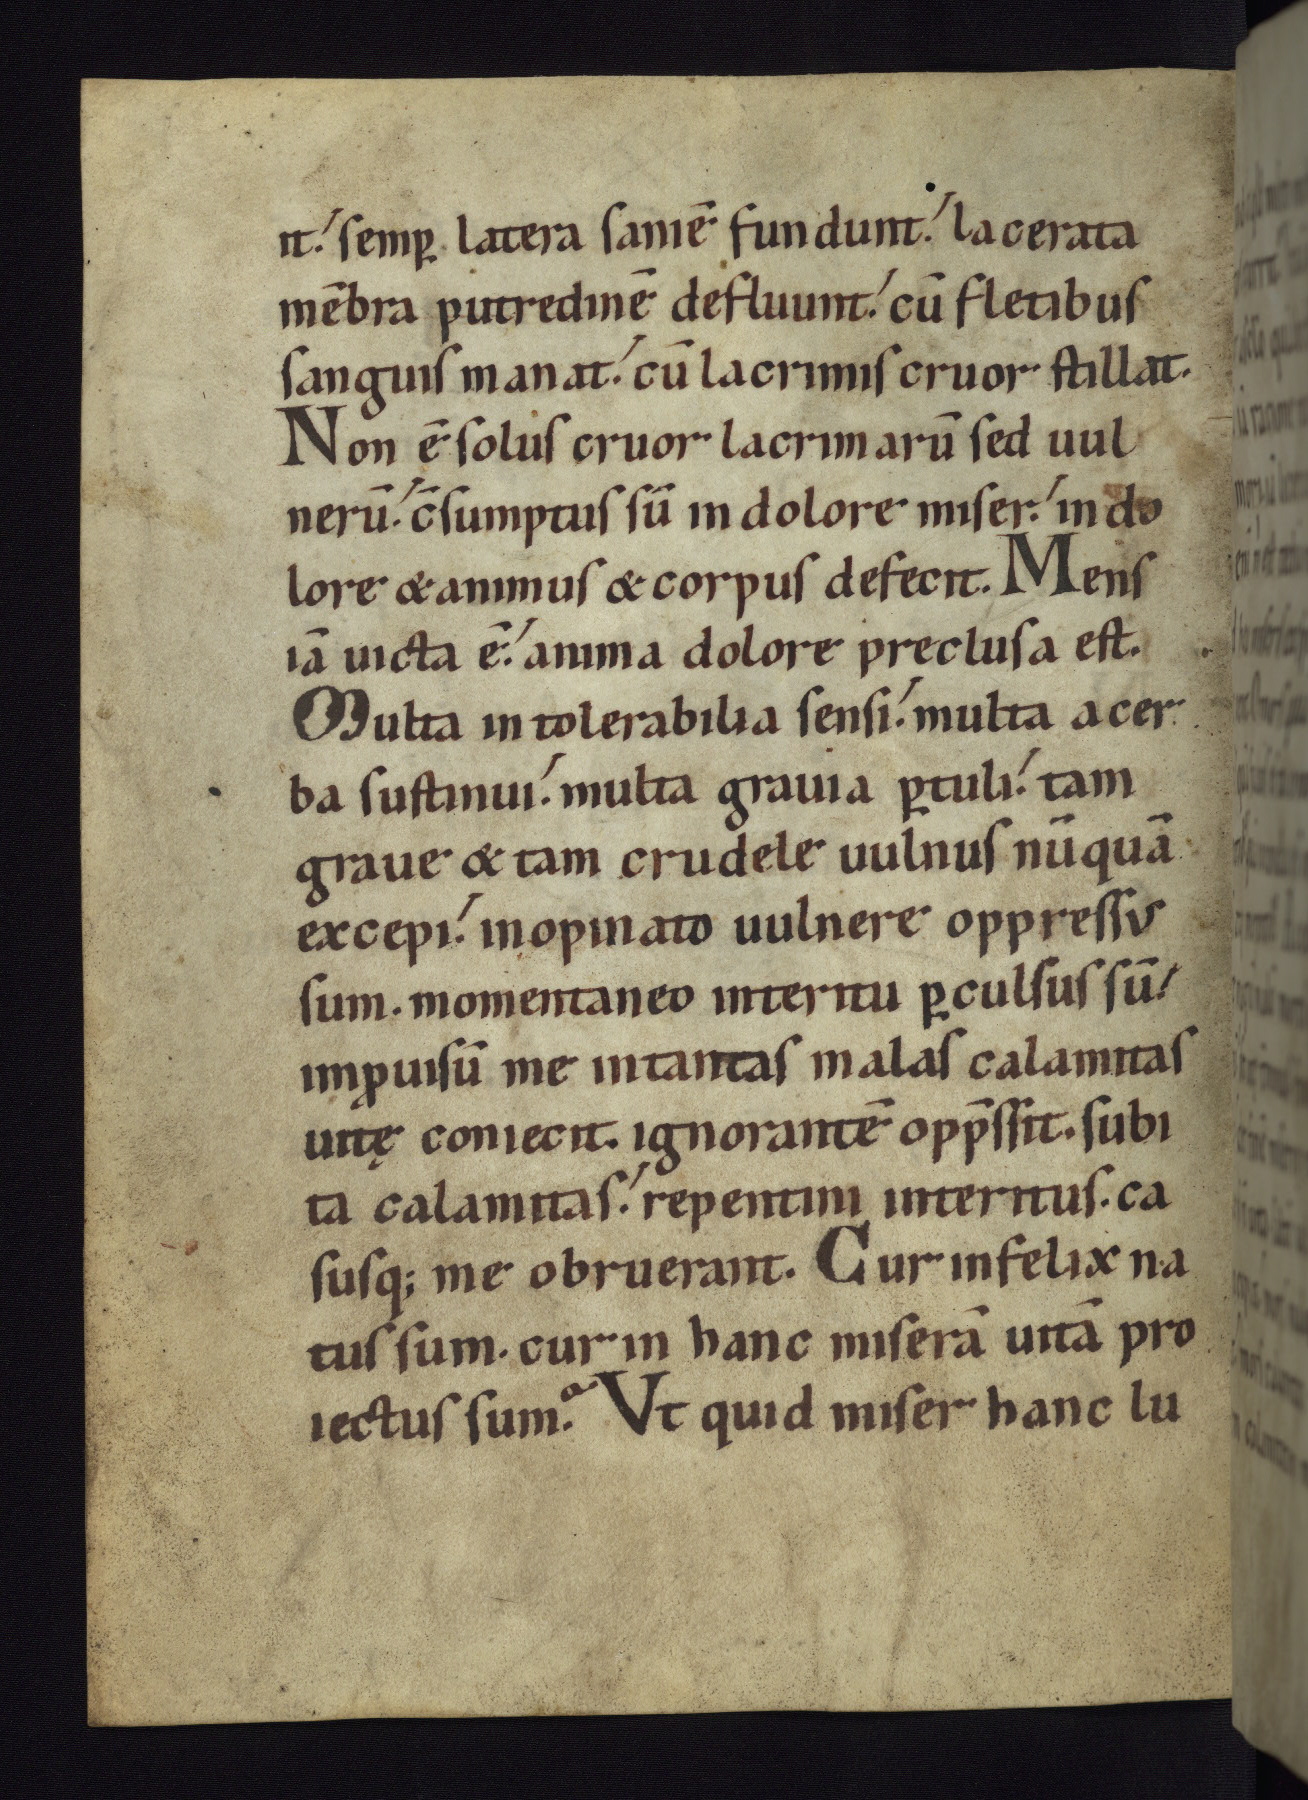 it. semꝑ latera saniē fundunt. lacerata
mēbra putredinē defluunt. cū fletibus
sanguis manat. cū lacrimis cruor stillat.
Non ē solus cruor lacrimarū sed uul
nerū. c̄sumptus sū in dolore miser. in do
lore & animus & corpus defecit. Mens
iā uicta ē. anima dolore preclusa est.
Multa intolerabilia sensi. multa acer
ba sustinui. multa grauia ꝑtuli. tam
graue & tam crudele uulnus nūquā
excepi. inopinato uulnere oppressus
sum. momentaneo interitu ꝑculsus sū.
imꝓuisū me in tantas malas calamitas
uitę coniecit. ignorantē opp̄ssit. subi
ta calamitas. repentini interitus. ca
susq; me obruerant. Cur infelix na
tus sum. cur in hanc miserā uitā pro
iectus sum? Vt quid miser hanc lu